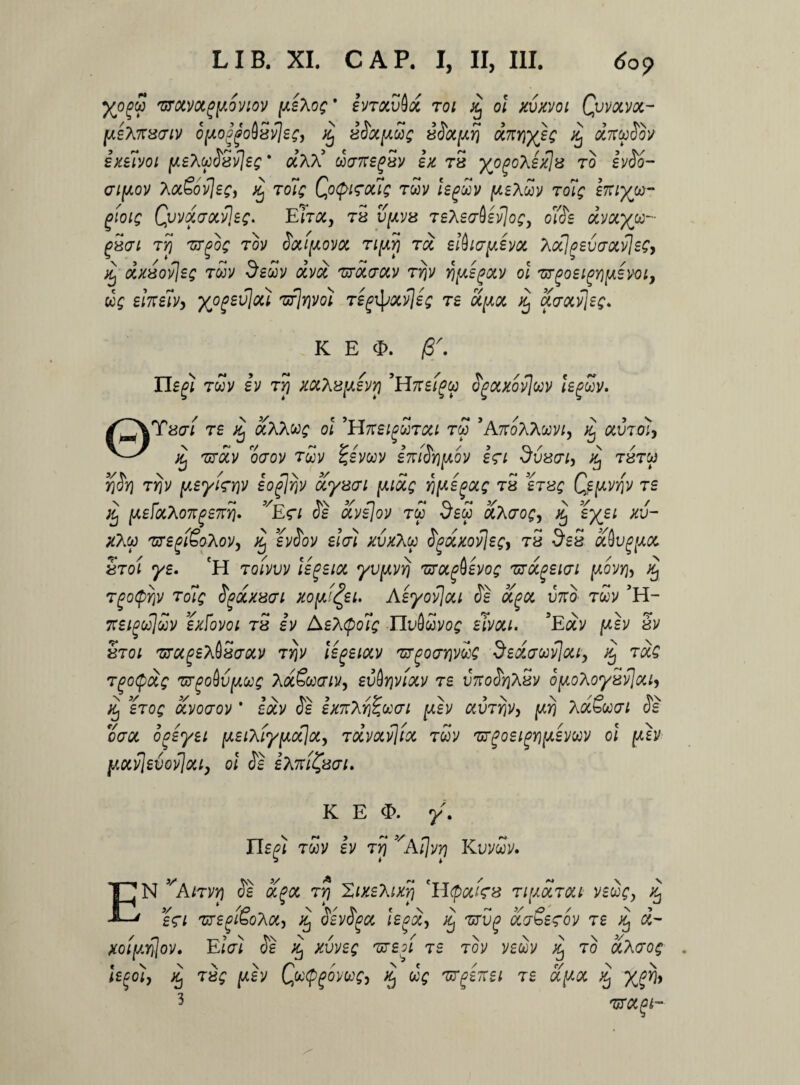 LIB. XI. CAP. I, II, III. 609
χορῷ παναρμόνιον μέλος· ἐνταῦθά τοι ϗ οἱ κύκνοι ϲυνανα-
μέλπȣσιν ὁμοῤῥοθȣντες, ϗ ȣδαμῶς ȣδαμῆ ἀπηχὲς ϗ ἀπωδὸν
ἐκεῖνοι μελωδȣντες· ἀλλ’ ὥσπερȣν ἐκ τȣ χορολέκτȣ τὸ ἐνδό-
σιμον λαβόντες, ϗ τοῖς ϲοφισταῖς τῶν ἱερῶν μελῶν τοῖς ἐπιχω-
ρίοις ϲυνάσαντες. Εἶτα, τȣ ὕμνȣ τελεσθέντος, οἵδε ἀναχω-
ρȣσι τῇ πρὸς τὸν δαίμονα τιμῇ τὰ εἰθισμένα λατρεύσαντες,
ϗ ἀκȣοντες τῶν θεῶν ἀνὰ πᾶσαν τὴν ἡμέραν οἱ προειρημένοι,
ὡς εἰπεῖν, χορευταὶ πτηνοὶ τέρψαντές τε ἅμα ϗ ᾄσαντες.
ΚΕΦ. β′.
Περὶ τῶν ἐν τῇ καλȣμένῃ Ἠπείρῳ δρακόντων ἱερῶν.
ΘΥȣσί τε ϗ ἄλλως οἱ Ἠπειρῶται τῷ Ἀπόλλωνι, ϗ αὐτοὶ,
ϗ πᾶν ὅσον τῶν ξένων ἐπίδημόν ἐστι θύȣσι, ϗ τȣτῳ
ἤδη τὴν μεγίστην ἑορτὴν ἄγȣσι μιᾶς ἡμέρας τȣ ἔτȣς ϲεμνήν τε
ϗ μεγαλοπρεπῆ. Ἔστι δὲ ἄνετον τῷ θεῷ ἄλσος, ϗ ἔχει κύ-
κλῳ περίβολον, ϗ ἔνδον εἰσὶ κύκλῳ δράκοντες, τȣ θεȣ ἄθυρμα
ȣτοί γε. Ἡ τοίνυν ἱέρεια γυμνὴ παρθένος πάρεισι μόνη, ϗ
τροφὴν τοῖς δράκȣσι κομίζει. Λέγονται δὲ ἄρα ὑπὸ τῶν Ἠ-
πειρωτῶν ἔκγονοι τȣ ἐν Δελφοῖς Πυθῶνος εἶναι. Ἐὰν μὲν ȣν
ȣτοι παρελθȣσαν τὴν ἱέρειαν προσηνῶς θεάσωνται, ϗ τὰς
τροφὰς προθύμως λάβωσιν, εὐθηνίαν τε ὑποδηλȣν ὁμολογȣνται,
ϗ ἔτος ἄνοσον· ἐὰν δὲ ἐκπλήξωσι μὲν αὐτὴν, μὴ λάβωσι δὲ
ὅσα ὀρέγει μειλίγματα, τἀναντία τῶν προειρημένων οἱ μὲν
μαντεύονται, οἱ δὲ ἐλπίζȣσι.
ΚΕΦ. γ′.
Περὶ τῶν ἐν τῇ Αἴτνῃ Κυνῶν.
ΕΝ Αἴτνῃ δὲ ἄρα τῇ Σικελικῇ Ἡφαίστȣ τιμᾶται νεὼς, ϗ
ἔστι περίβολα, ϗ δένδρα ἱερὰ, ϗ πῦρ ἄσβεστόν τε ϗ ἀ-
κοίμητον. Εἰσὶ δὲ ϗ κύνες περί τε τὸν νεὼν ϗ τὸ ἄλσος
ἱεροὶ, ϗ τȣς μὲν ϲωφρόνως, ϗ ὡς πρέπει τε ἅμα ϗ χρὴ,
3 παρι-